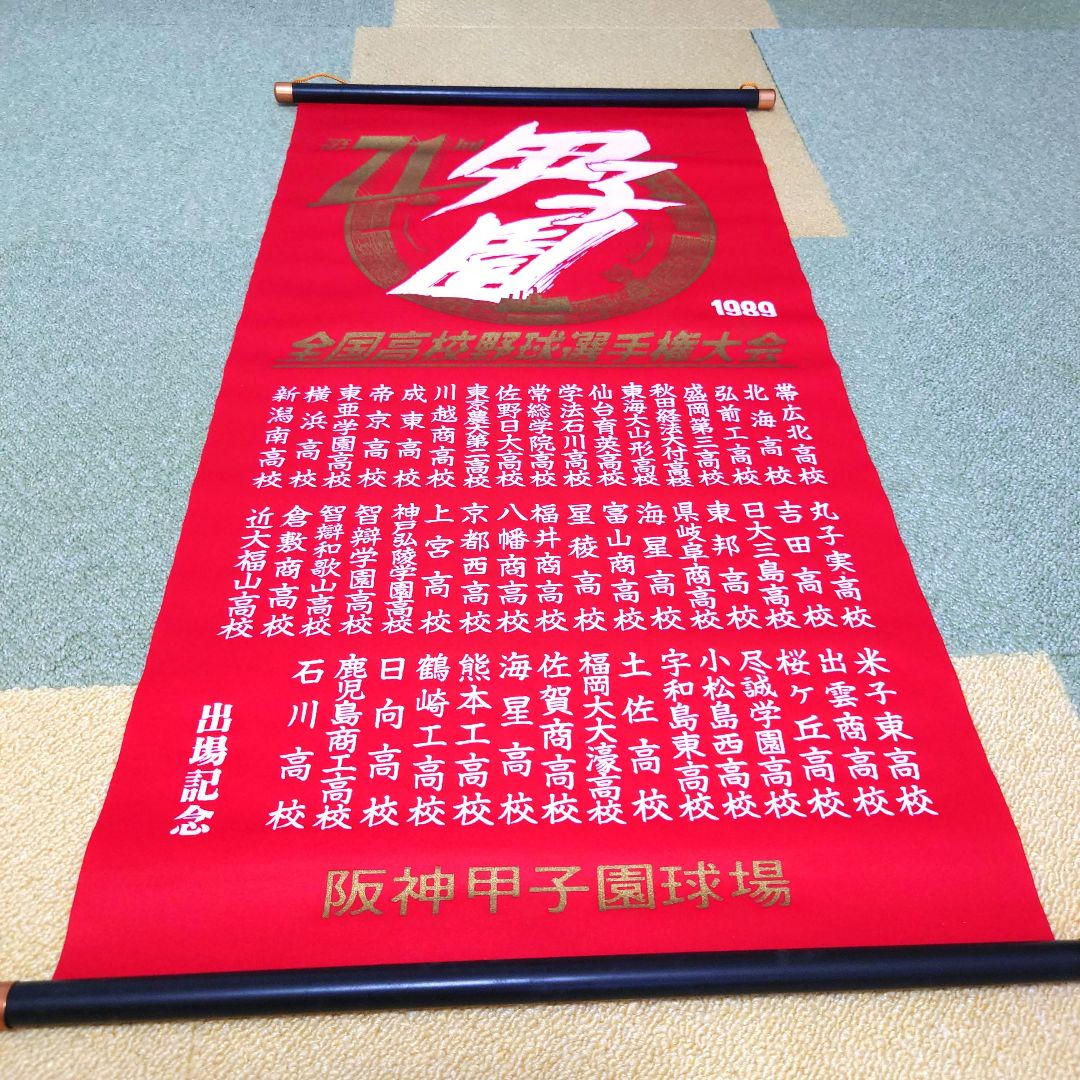 第71回
甲子園
1989
全国高校野球選手権大会
帯広北高校
北海高校
弘前工高校
盛岡第三高校
秋田経法大付高校
東海大山形高校
仙台育英高校
学法石川高校
常総学院高校
佐野日大高校
東京農大第二高校
川越商高校
成東高校
帝京高校
東亜学園高校
横浜高校
新潟南高校
丸子実高校
吉田高校
日大三島高校
東邦高校
県岐阜商高校
海星高校
富山商高校
星稜高校
福井商高校
八幡商高校
京都西高校
上宮高校
神戸弘陵学園高校
智辯学園高校
智辯和歌山高校
倉敷商高校
近大福山高校
米子東高校
出雲商高校
桜ケ丘高校
尽誠学園高校
小松島西高校
宇和島東高校
土佐高校
福岡大大濠高校
佐賀商高校
海星高校
熊本工高校
鶴崎工高校
日向高校
鹿児島商工高校
石川高校
出場記念
阪神甲子園球場